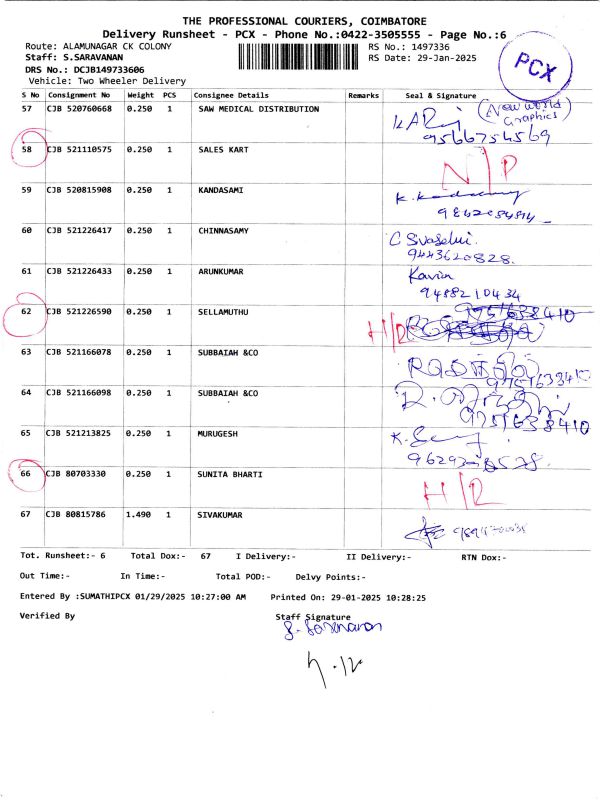 THE PROFESSIONAL COURIERS, COIMBATORE
Delivery Runsheet - PCX - Phone No.:0422-3505555 - Page No.:6
Route: ALAMUNAGAR CK COLONY RS No.: 1497336
Staff: S.SARAVANAN RS Date: 29-Jan-2025
DRS No.: DCJB149733606
Vehicle: Two Wheeler Delivery
PCX
S No Consignment No Weight PCS Consignee Details Remarks Seal & Signature
57 CJB 520760668 0.250 1 SAW MEDICAL DISTRIBUTION (New World Graphics)
9566754569
58 CJB 521110575 0.250 1 SALES KART N/P
59 CJB 520815908 0.250 1 KANDASAMI
60 CJB 521226417 0.250 1 CHINNASAMY
9443620828.
61 CJB 521226433 0.250 1 ARUNKUMAR Kavin
9488210434
62 CJB 521226590 0.250 1 SELLAMUTHU 9751638410
H/R
63 CJB 521166078 0.250 1 SUBBAIAH &CO
64 CJB 521166098 0.250 1 SUBBAIAH &CO
9751638410
65 CJB 521213825 0.250 1 MURUGESH
66 CJB 80703330 0.250 1 SUNITA BHARTI H/R
67 CJB 80815786 1.490 1 SIVAKUMAR
Tot. Runsheet:- 6 Total Dox:- 67 I Delivery:- II Delivery:- RTN Dox:-
Out Time:- In Time:- Total POD:- Delvy Points:-
Entered By :SUMATHIPCX 01/29/2025 10:27:00 AM Printed On: 29-01-2025 10:28:25
Verified By Staff Signature
S. Saravanan